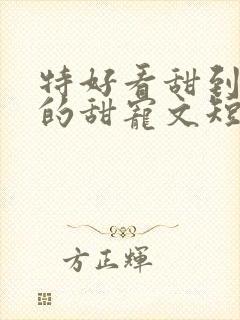 特好看甜到
的甜宠文短
方正辉